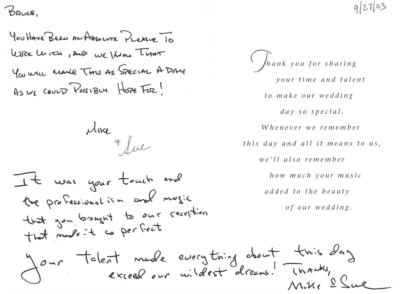 9/27/03
BRUCE,
YOU HAVE BEEN AN ABSOLUTE PLEASURE TO
WORK WITH, AND WE KNOW THAT
YOU WILL MAKE THIS AS SPECIAL A DAY
AS WE COULD POSSIBLY HOPE FOR!
MIKE
& Sue
It was your touch and
the professionalism and music
that you brought to our reception
that made it so perfect
Your talent made everything about this day
exceed our wildest dreams! Thanks,
Mike & Sue
Thank you for sharing
your time and talent
to make our wedding
day so special.
Whenever we remember
this day and all it means to us,
we'll also remember
how much your music
added to the beauty
of our wedding.